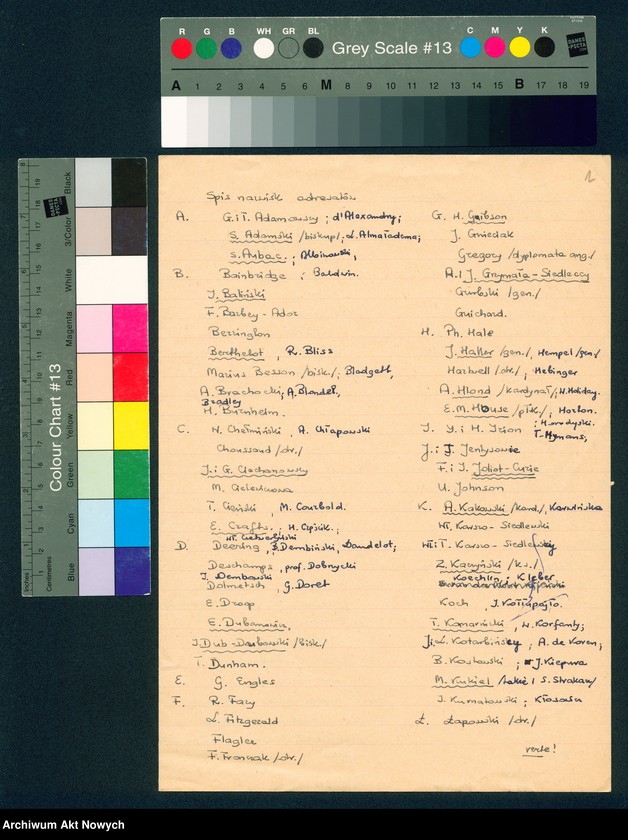 R G B WH GR BL Grey Scale #13 C M Y K
DANES PICTA
A 1 2 3 4 5 6 M 8 9 10 11 12 13 14 15 B 17 18 19
Colour Chart #13
Black
3/Color
White
Magenta
Red
Yellow
Green
Cyan
Blue
Inches
Centimetres
1
Spis nazwisk adresatów
A. G. i T. Adamowscy ; d'Alexandry;
S. Adamski /biskup/; L. Almatadema;
S. Aubac. ; Albinowski;
B. Bainbridge ; Baldwin.
J. Baliński
F. Barbey - Ador
Berrington
Berthelot , R. Bliss
Marius Besson /bisk/; Blodgett,
A. Brachocki; A. Blondel,
Bradley
H. Birnheim.
C. W. Chełmiński , A. Chłapowski
Choussaud /dr./
J. i G. Ciechanowscy
M. Ciechanowa
T. Cieński , M. Courbold.
E. Crafts. ; H. Cepnik. ;
D. Deering, B. Dembiński, Dandelot;
Deschamps , prof. Dobrycki
J. Dembowski
Dolmetsch , G. Doret
E. Droop
E. Dubanowicz,
J. Dub-Dubowski /bisk./
T. Dunham.
E. G. Engles
F. R. Fary
L. Fitzgerald
Flagler
F. Fronczak /dr./
G. H. Geibson
J. Gniedak
Gregory /dyplomata ang./
A. i J. Grzymała - Siedleccy
Gurbski /gen./
Guichard.
H. Ph. Hale
J. Haller /gen./, Hempel /gen/
Hartwell /dr./ ; Hebinger
A. Hlond /kardynał/; W. Holiday.
E. M. House /płk./, Horton.
; Horodyski.
J. Y. i H. Izion T. Hymans;
J. i J. Jentysowie
F. i I. Joliot-Curie
U. Johnson
K. A. Kakowski /kard./, Karwińska
Wł. Karszo - Siedlewski
Wł. i T. Karszo - Siedlewscy
Z. Kaczyński /ks./
Koechlin ; Kleber
Koch , J. Kołłupajło.
T. Komarnicki , W. Korfanty;
J. i L. Kotarbińscy , A. de Koven;
B. Kozłowski ; J. Kiepura
M. Kukiel
J. Kurnatowski ; Kłosass
Ł. Łapowski /dr./
verte!
Archiwum Akt Nowych